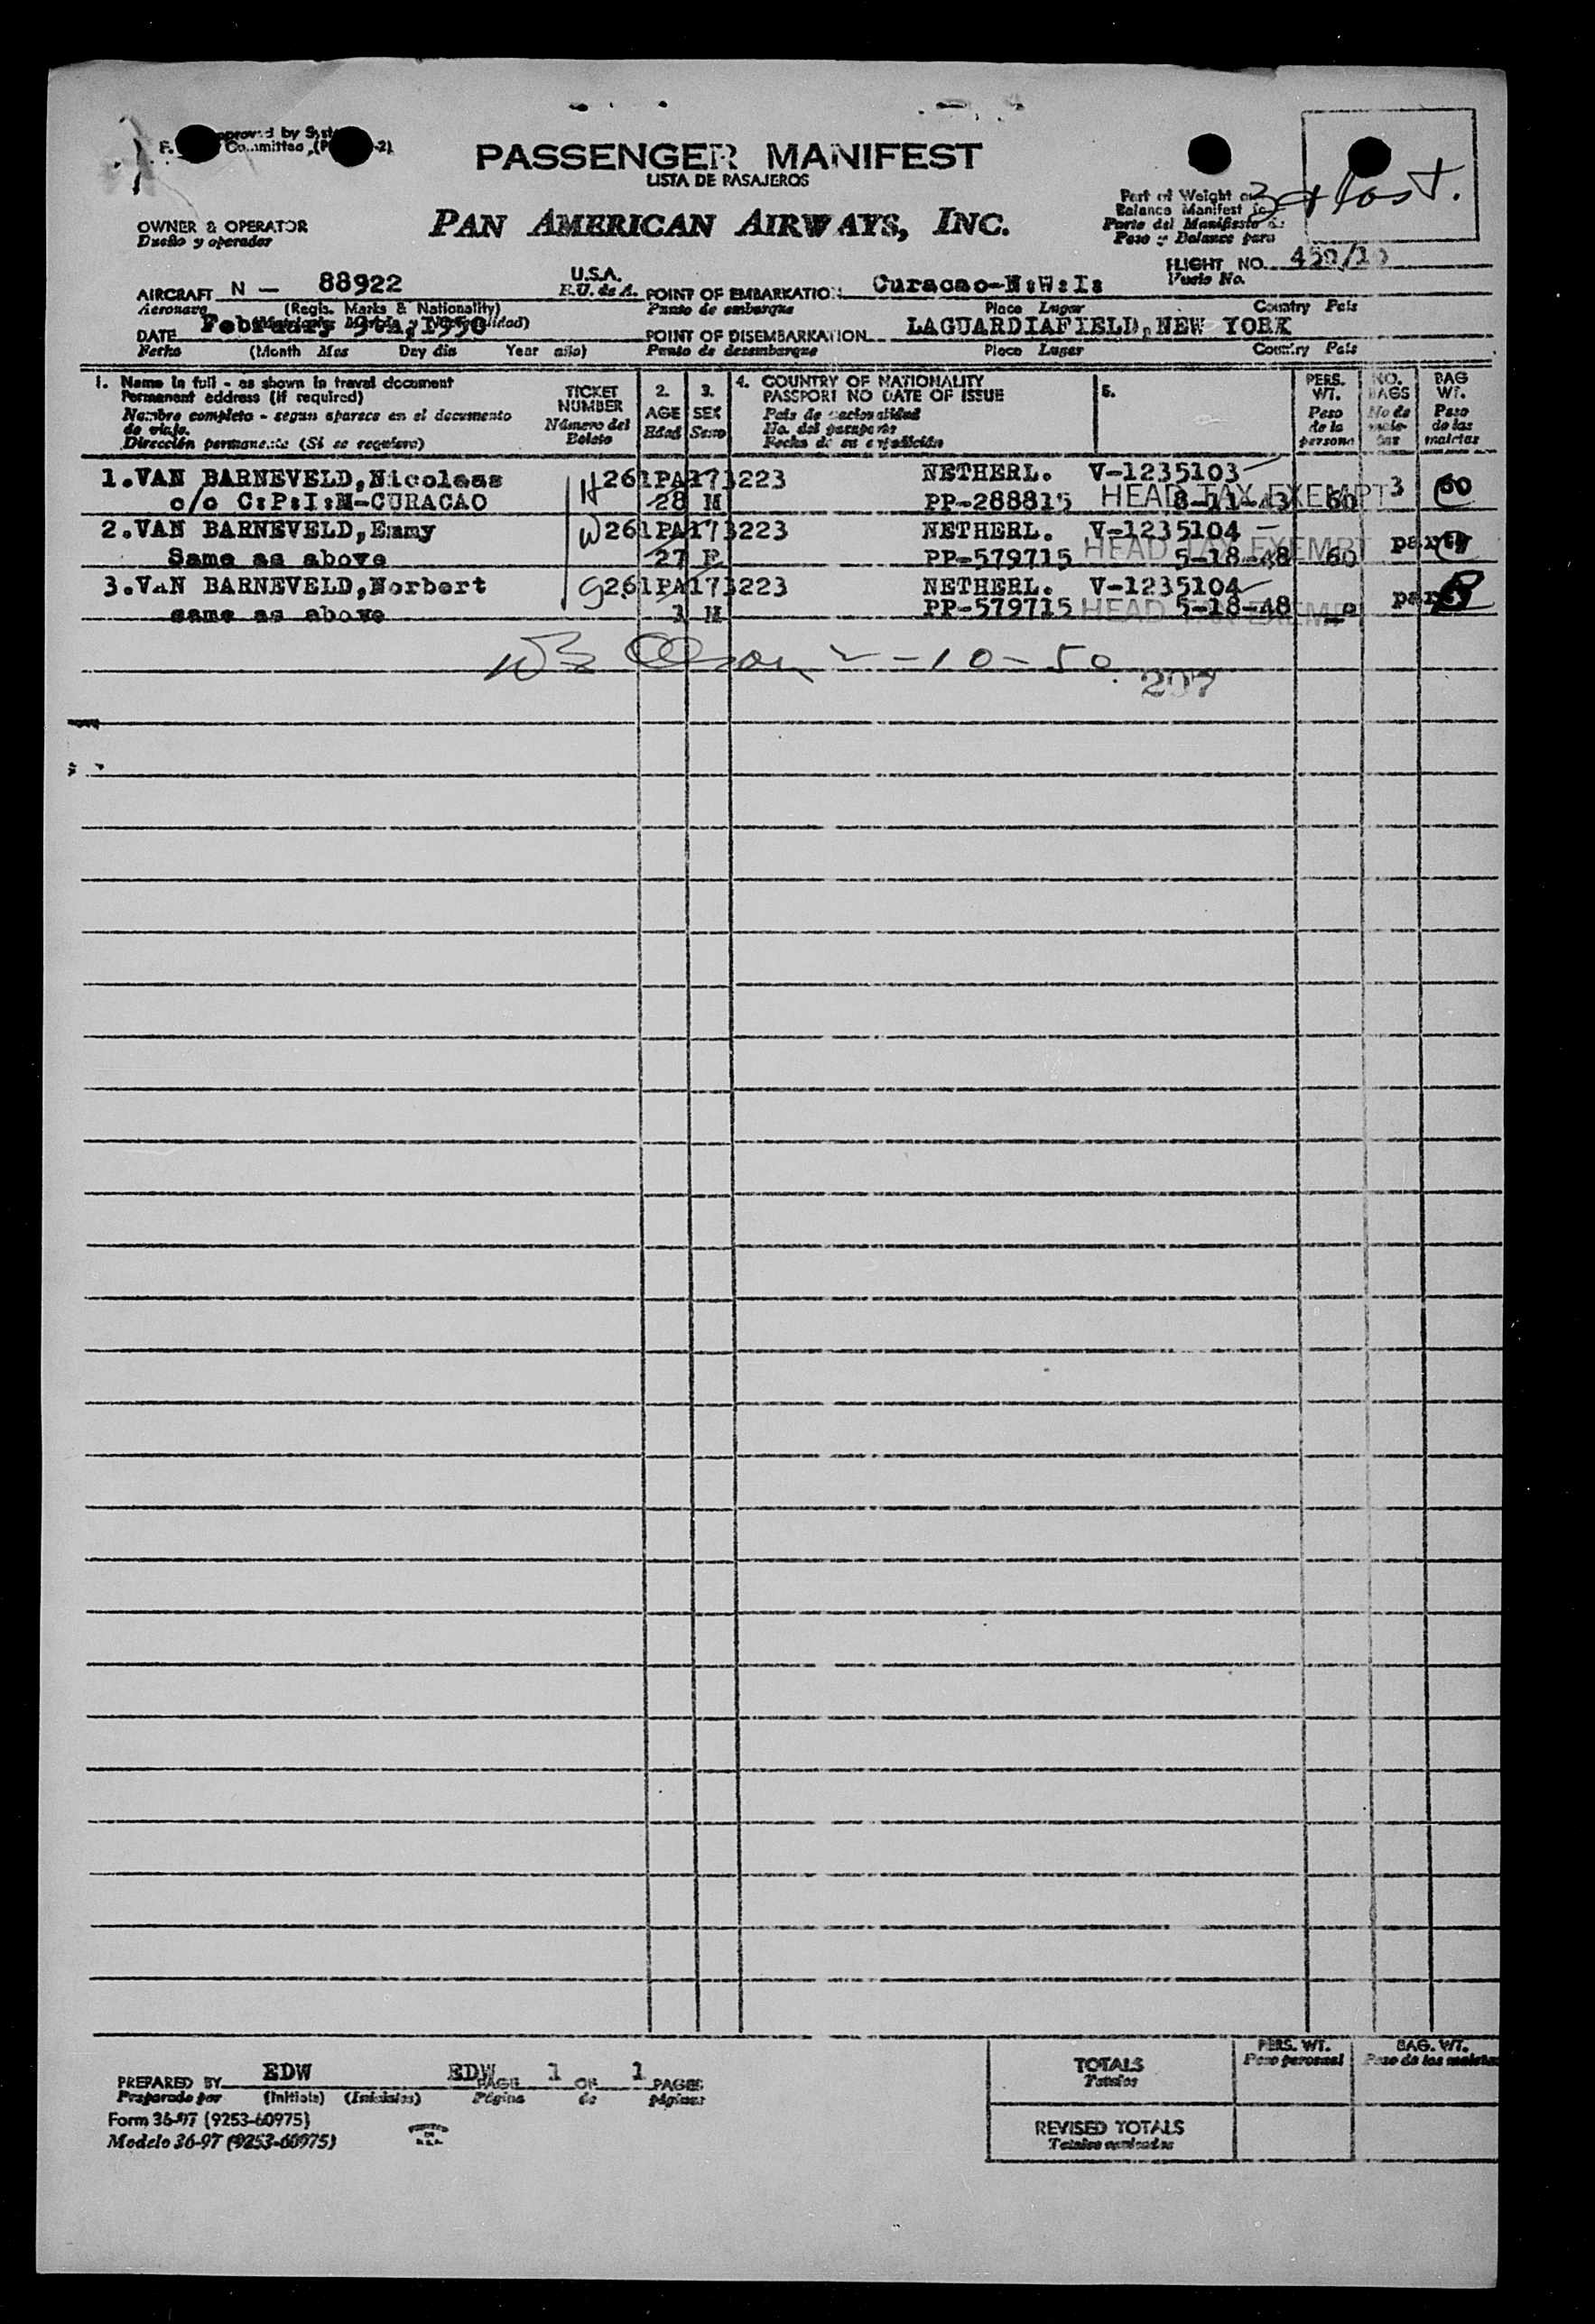 PASSENGER MANIFEST
LISTA DE PASAJEROS
PAN AMERICAN AIRWAYS, INC.
OWNER & OPERATOR
Dueño y operador
Part of Weight
Balance Manifest
Parte del Manifiesto de
Peso y Balance para
FLIGHT NO. 450/10
Vuelo No.
AIRCRAFT N — 88922 U.S.A.
Aeronave (Regis. Marks & Nationality) E.U. de A.
POINT OF EMBARKATION Curacao-N:W:I:
Punto de embarque Place Lugar Country País
DATE February 9th, 1950
Fecha (Month Mes Day día Year año)
POINT OF DISEMBARKATION LAGUARDIAFIELD, NEW YORK
Punto de desembarque Place Lugar Country País
1. Name in full - as shown in travel document
Permanent address (if required)
Nombre completo - segun aparece en el documento
de viaje.
Dirección permanente (Si se requiere)
TICKET
NUMBER
Número del
Boleto
2.
AGE
Edad
3.
SEX
Sexo
4. COUNTRY OF NATIONALITY
PASSPORT NO DATE OF ISSUE
País de nacionalidad
No. del pasaporte
Fecha de su expedición
5.
PERS.
WT.
Peso
de la
persona
NO.
BAGS
No de
male-
tas
BAG
WT.
Peso
de las
maletas
1.VAN BARNEVELD,Nicolaas H 261PA173223 NETHERL. V-1235103
c/o C:P:I:M-CURACAO 28 M PP-288815 HEAD TAX EXEMPT 60 3 60
2.VAN BARNEVELD,Emmy W 261PA173223 NETHERL. V-1235104
Same as above 27 F PP-579715 HEAD TAX EXEMPT 5-18-48 60 party
3.VAN BARNEVELD,Norbert 261PA173223 NETHERL. V-1235104
same as above M PP-579715 HEAD 5-18-48 party
2-10-50
207
PREPARED BY EDW EDW PAGE 1 OF 1 PAGES
Preparado por (Initials) (Iniciales) Página de páginas
Form 36-97 (9253-60975)
Modelo 36-97 (9253-60975)
PERS. WT.
Peso personal
BAG. WT.
Peso de las maletas
TOTALS
Totales
REVISED TOTALS